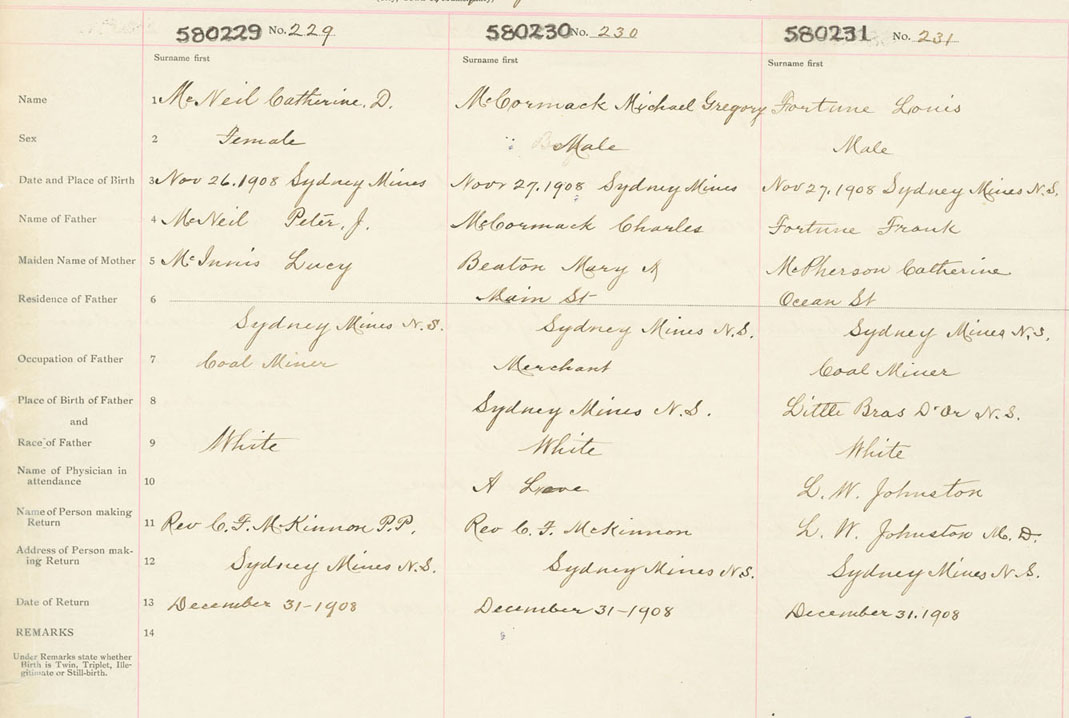 580229 No. 229 580230 No. 230 580231 No. 231
Surname first Surname first Surname first
Name 1 McNeil Catherine. D. McCormack Michael Gregory Fortune Louis
Sex 2 Female Male Male
Date and Place of Birth 3 Nov 26.1908 Sydney Mines Novr 27.1908 Sydney Mines Nov 27,1908 Sydney Mines N.S.
Name of Father 4 McNeil Peter. J. McCormack Charles Fortune Frank
Maiden Name of Mother 5 McInnis Lucy Beaton Mary A McPherson Catherine
Residence of Father 6 Main St Ocean St
Sydney Mines N.S. Sydney Mines N.S. Sydney Mines N.S.
Occupation of Father 7 Coal Miner Merchant Coal Miner
Place of Birth of Father 8 Sydney Mines N.S. Little Bras D'Or N.S.
and
Race of Father 9 White White White
Name of Physician in
attendance 10 A L. W. Johnston
Name of Person making
Return 11 Rev C. F. McKinnon P.P. Rev C. F. McKinnon L. W. Johnston M. D.
Address of Person mak-
ing Return 12 Sydney Mines N.S. Sydney Mines N.S. Sydney Mines N.S.
Date of Return 13 December 31-1908 December 31-1908 December 31.1908
REMARKS 14
Under Remarks state whether
Birth is Twin, Triplet, Ille-
gitimate or Still-birth.